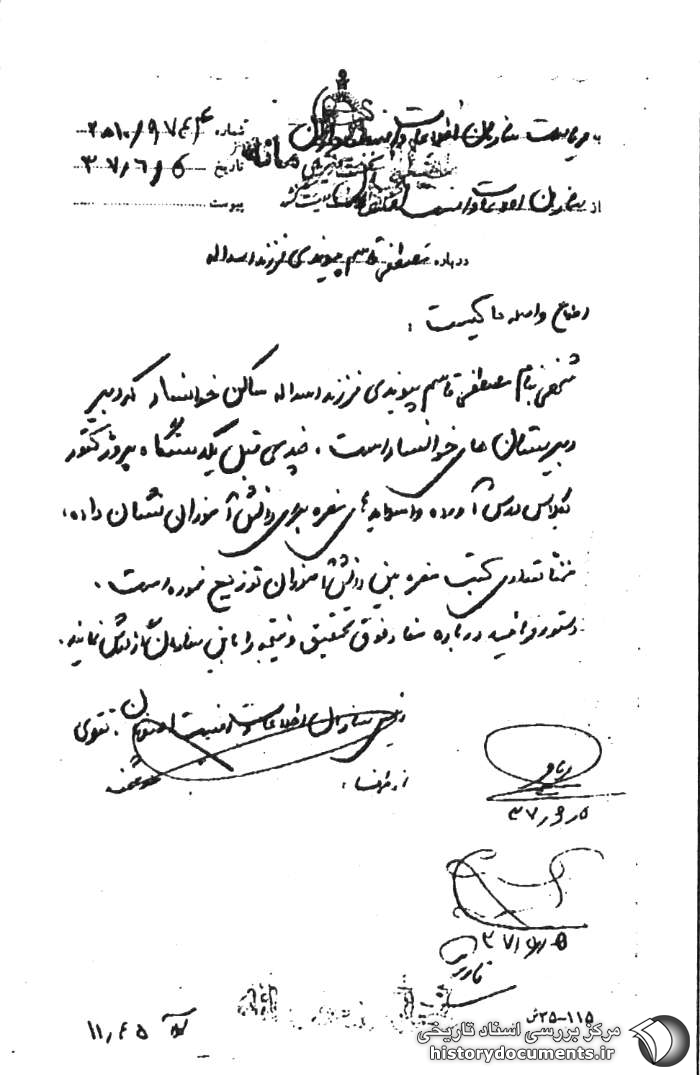 به ریاست سازمان اطلاعات و امنیت
شماره ۲ـ۵۱۰/۹۷۴۴
تاریخ ۳۷/۶/۵
از سازمان اطلاعات و امنیت
پیوست
درباره مصطفی قاسم پیوندی فرزند اسداله
اطلاع واصله حاکیست :
شخصی بنام مصطفی قاسم پیوندی فرزند اسداله ساکن خوانسار که دبیر
دبیرستان های خوانسار است ، چندی قبل یکدستگاه پروژکتور
بکلاس درس آورده و اسلایدهای مضره برای دانش آموزان نشان داده،
ضمناً تعدادی کتب مضره بین دانش آموزان توزیع نموده است .
دستور فرمائید درباره مفاد فوق تحقیق و نتیجه را باین سازمان گزارش نمایند .
رئیس سازمان اطلاعات و امنیت اصفهان . تقوی
از طرف :
۳۷/۶/۵
۳۷/۶/۵
۱۱/۴۵
۱۱۵-۲۵ش
مرکز بررسی اسناد تاریخی
historydocuments.ir